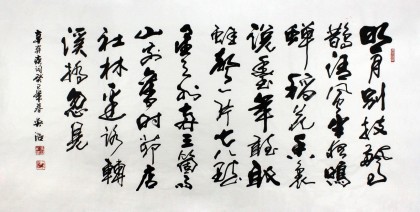 明月别枝驚
鵲清風半夜鳴
蟬稻花香裏
說豐年聽取
蛙聲一片七八
星天外兩三雨
山前舊時茆店
社林邊路轉
溪橋忽見
辛弃疾词癸巳年